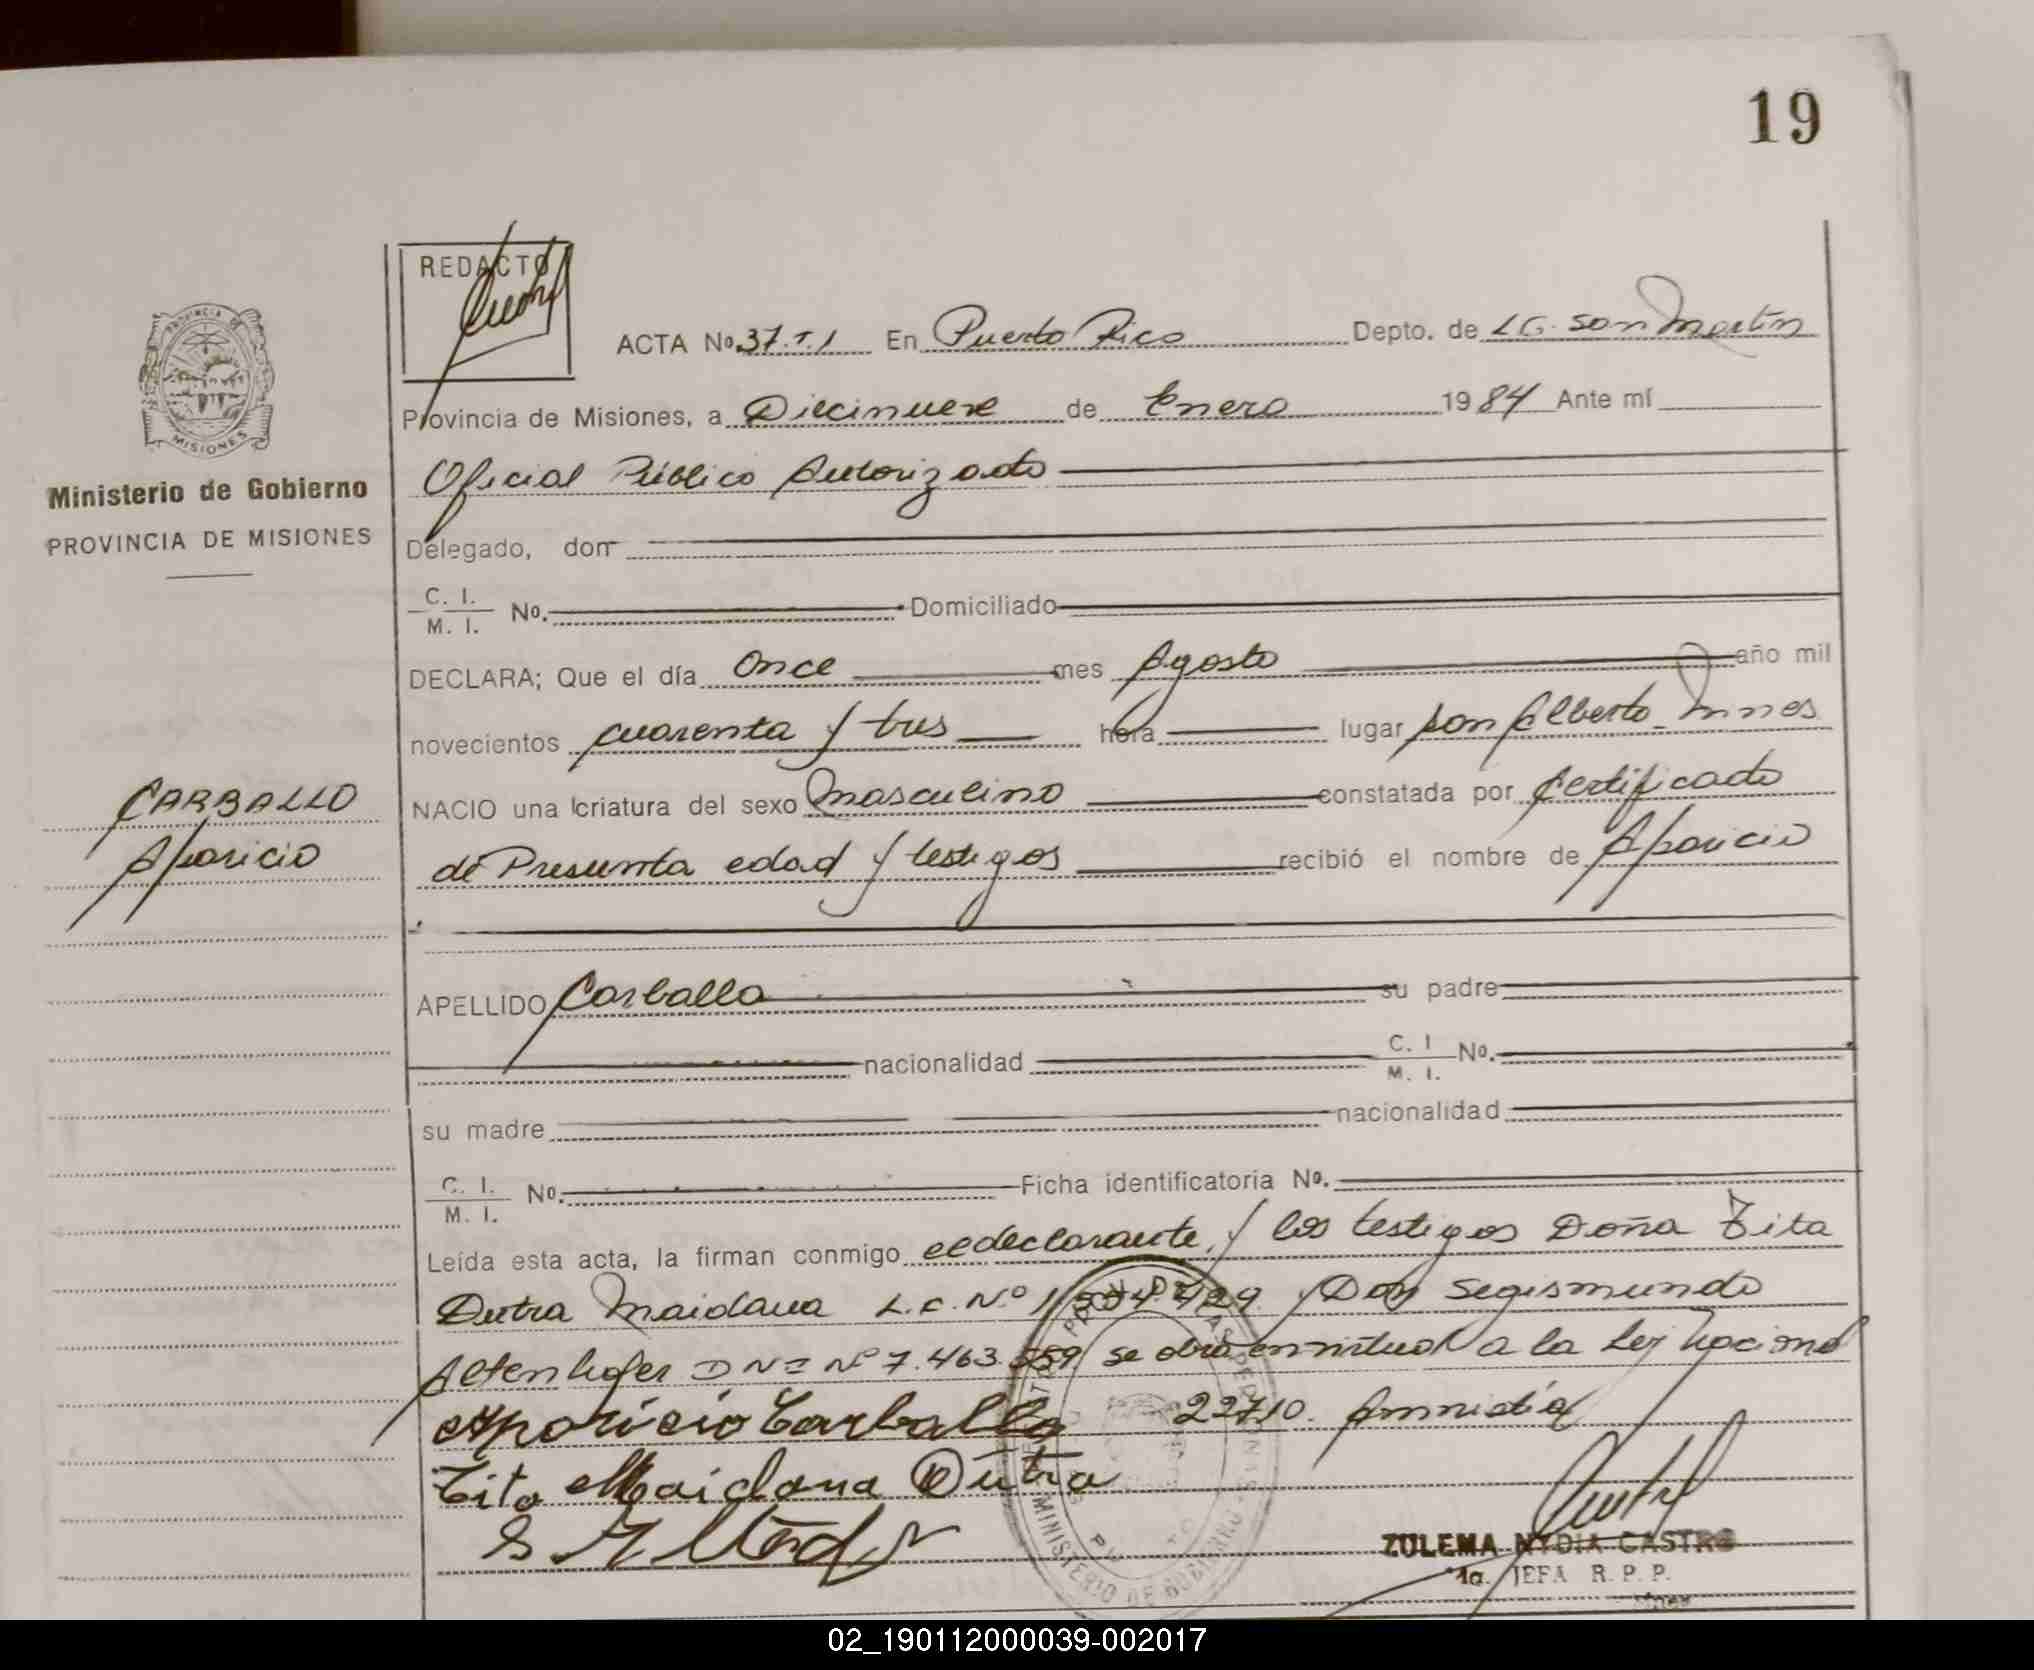 19
REDACTO
ACTA No. 37.T.1 En Puerto Rico Depto. de L.G. San Martín
Provincia de Misiones, a Diecinueve de Enero 1984 Ante mí
Oficial Público Autorizado
Delegado, don
C. I.
M. I. No. Domiciliado
DECLARA; Que el día Once mes Agosto año mil
novecientos cuarenta y tres hora lugar San Alberto Mnes
NACIO una criatura del sexo Masculino constatada por Certificado
de Presunta edad y testigos recibió el nombre de Aparicio
APELLIDO Carballo su padre
nacionalidad C. I
M. I. No.
su madre nacionalidad
C. I.
M. I. No. Ficha identificatoria No.
Leída esta acta, la firman conmigo el declarante y los testigos Doña Tita
Dutra Maidana L.C. Nº y Don Segismundo
Altenhofer DNI Nº 7.463.559 se obra en virtud a la Ley Nacional
Aparicio Carballo 22710. Amnistía
Tita Maidana Dutra
ZULEMA NYDIA CASTRO
1a. JEFA R. P. P.
Mnes
PROVINCIA DE
MISIONES
Ministerio de Gobierno
PROVINCIA DE MISIONES
CARBALLO
Aparicio
MINISTERIO DE GOBIERNO
02_190112000039-002017